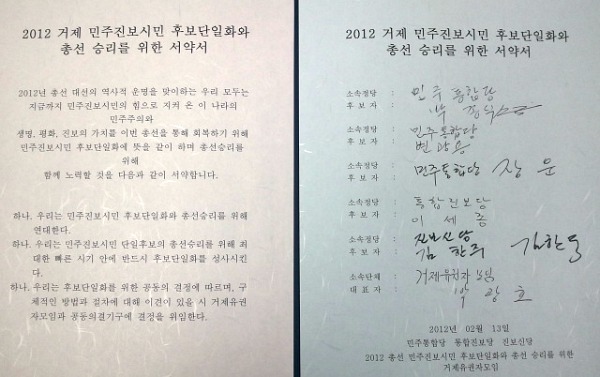 2012 거제 민주진보시민 후보단일화와
총선 승리를 위한 서약서
2012년 총선 대선의 역사적 운명을 맞이하는 우리 모두는
지금까지 민주진보시민의 힘으로 지켜 온 이 나라의
민주주의와
생명, 평화, 진보의 가치를 이번 총선을 통해 회복하기 위해
민주진보시민 후보단일화에 뜻을 같이 하며 총선승리를
위해
함께 노력할 것을 다음과 같이 서약합니다.
하나, 우리는 민주진보시민 후보단일화와 총선승리를 위해
연대한다.
하나, 우리는 민주진보시민 단일후보의 총선승리를 위해 최
대한 빠른 시기 안에 반드시 후보단일화를 성사시킨
다.
하나, 우리는 후보단일화를 위한 공동의 결정에 따르며, 구
체적인 방법과 절차에 대해 이견이 있을 시 거제유권
자모임과 공동의결기구에 결정을 위임한다.
2012 거제 민주진보시민 후보단일화와
총선 승리를 위한 서약서
소속정당 : 민주통합당
후 보 자 :
소속정당 : 민주통합당
후 보 자 : 변광용
소속정당 : 민주통합당 장운
후 보 자 :
소속정당 : 통합진보당
후 보 자 : 이세종
소속정당 : 진보신당
후 보 자 : 김한주
소속단체 : 거제유권자모임
대 표 자 : 박광호
2012년 02월 13일
민주통합당 통합진보당 진보신당
2012 총선 민주진보시민 후보단일화와 총선 승리를 위한
거제유권자모임